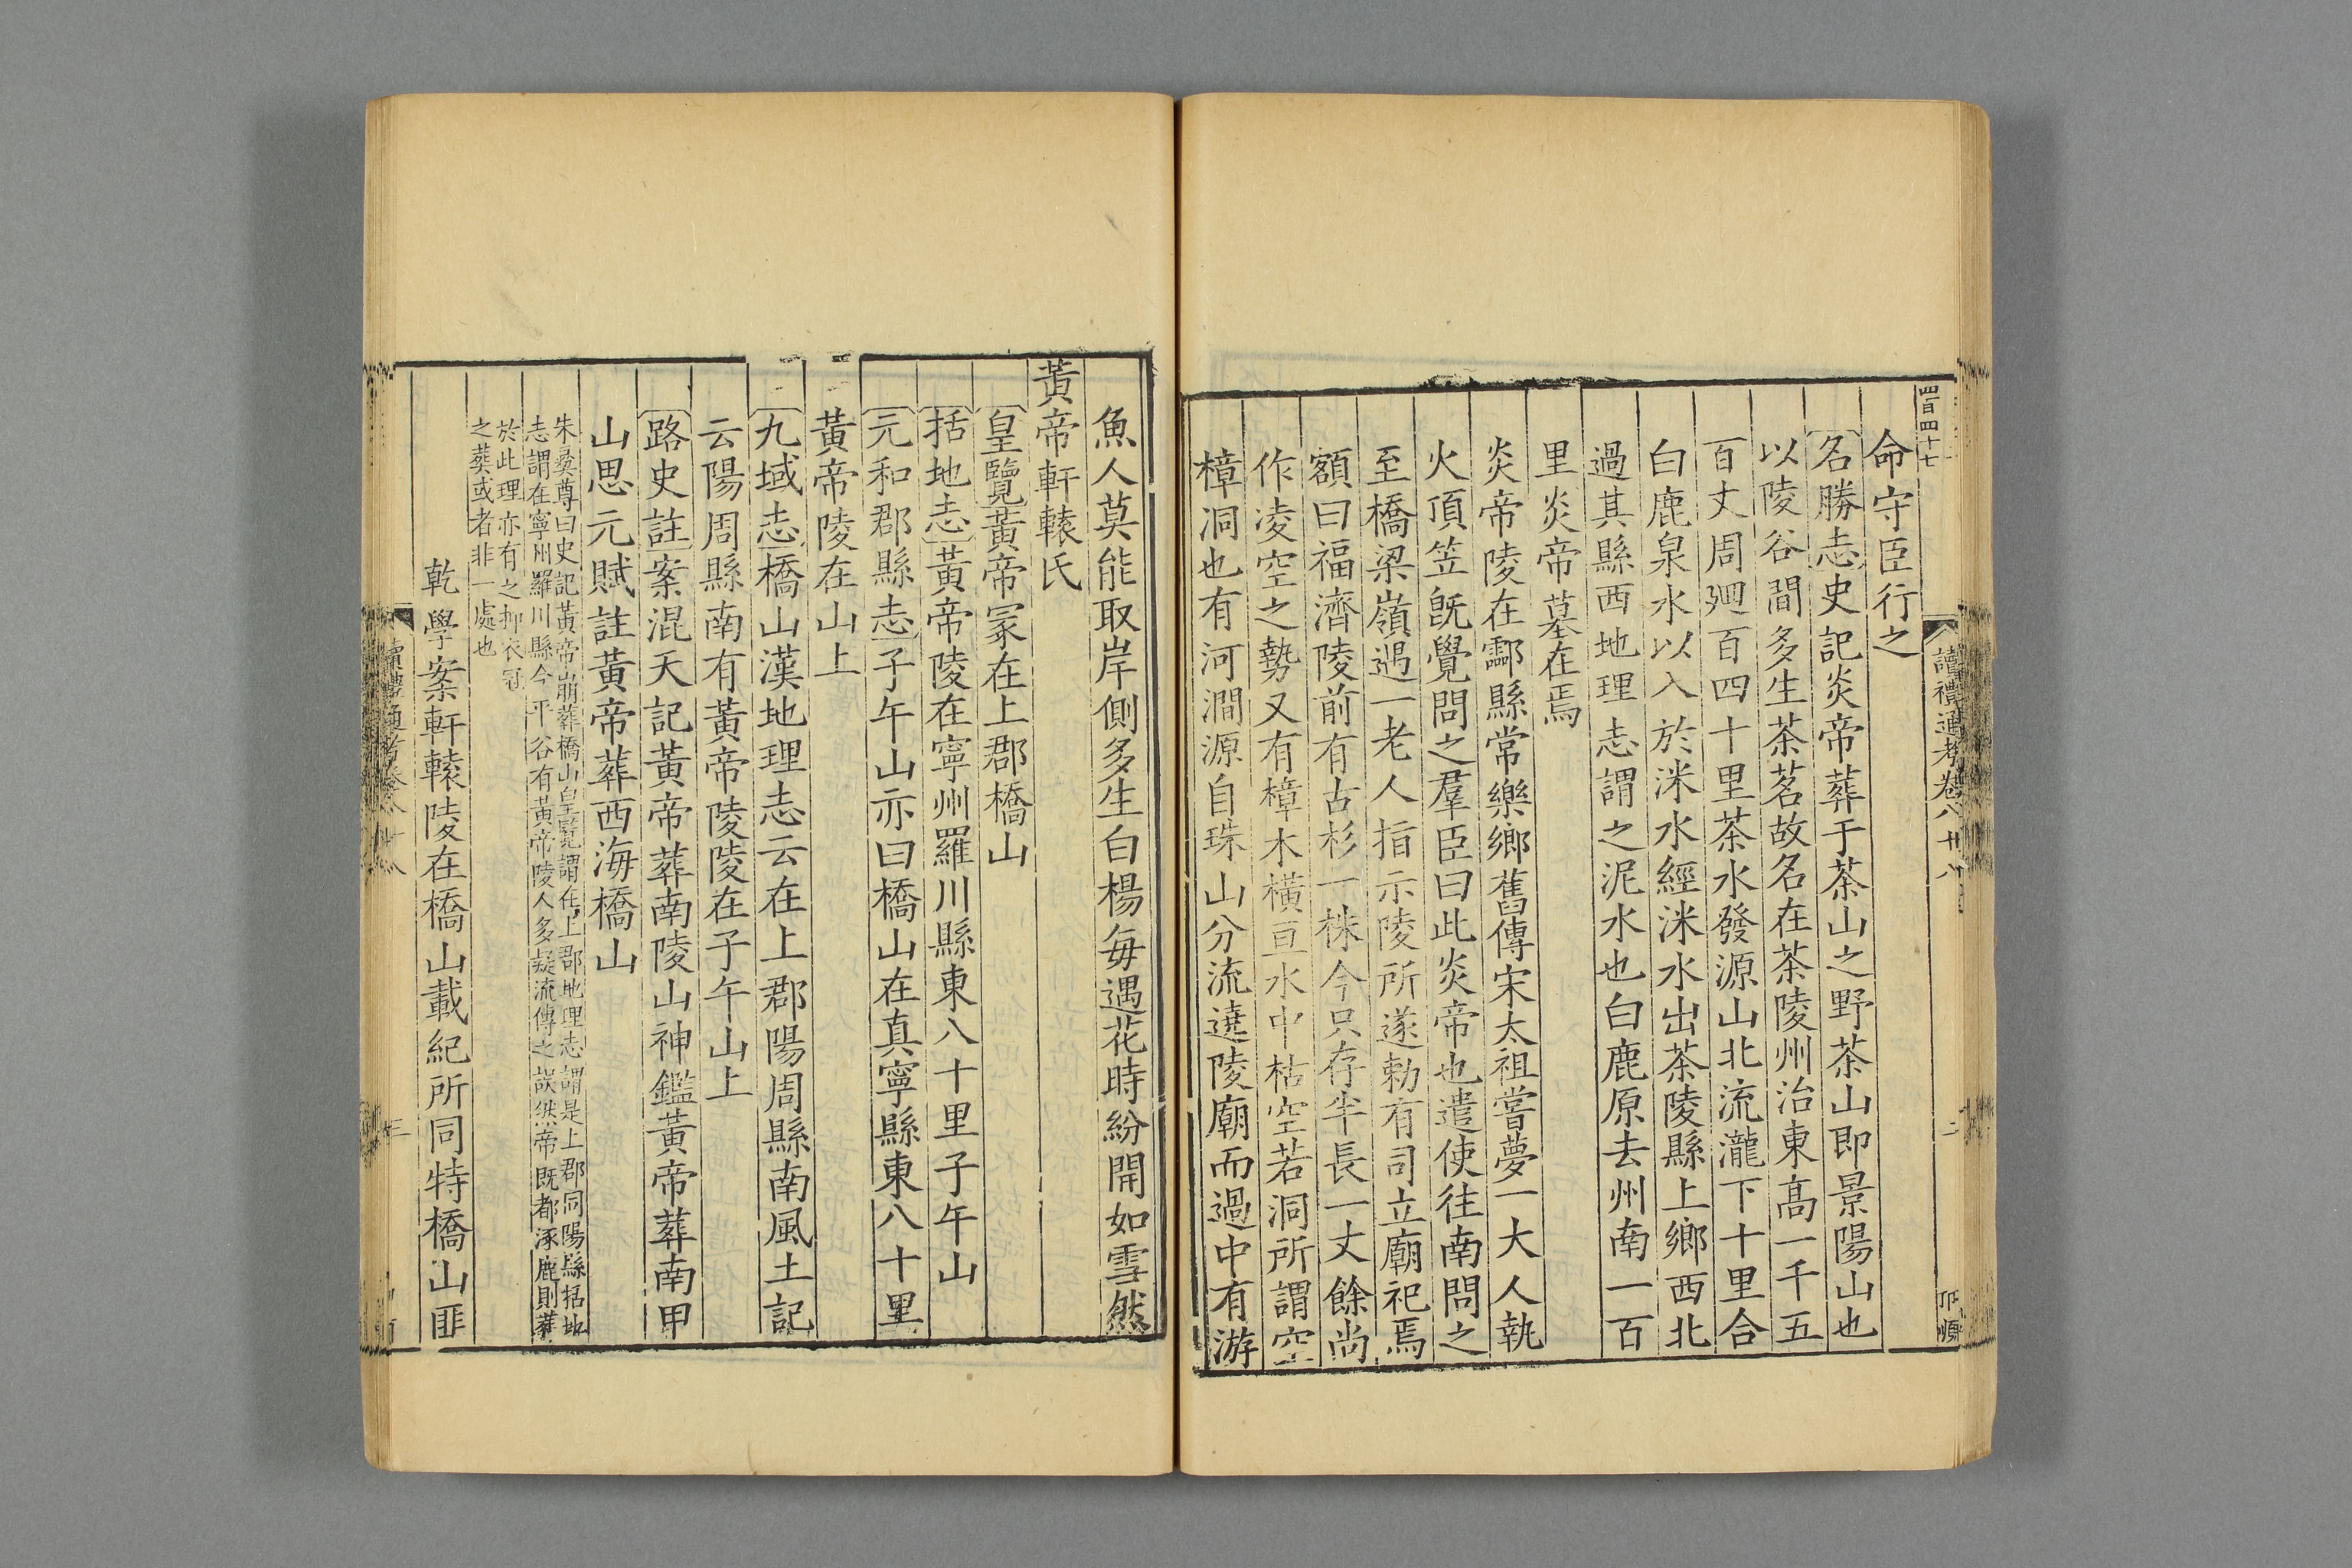 四百四十七
讀禮通考卷八十八
二
命守臣行之
名勝志史記炎帝葬于茶山之野茶山即景陽山也
以陵谷間多生茶茗故名在茶陵州治東高一千五
百丈周廻百四十里茶水發源山北流瀧下十里合
白鹿泉水以入於洣水經洣水出茶陵縣上鄉西北
過其縣西地理志謂之泥水也白鹿原去州南一百
里炎帝墓在焉
炎帝陵在酃縣常樂鄉舊傳宋太祖嘗夢一大人執
火頂笠旣覺問之羣臣曰此炎帝也遣使往南問之
至橋梁嶺遇一老人指示陵所遂勅有司立廟祀焉
額曰福濟陵前有古杉一株今只存半長一丈餘尚
作凌空之勢又有樟木橫亘水中枯空若洞所謂空
樟洞也有河澗源自珠山分流遶陵廟而過中有游
魚人莫能取岸側多生白楊每遇花時紛開如雪然
黃帝軒轅氏
皇覽黃帝冢在上郡橋山
括地志黃帝陵在寧州羅川縣東八十里子午山
元和郡縣志子午山亦曰橋山在真寧縣東八十里
黃帝陵在山上
九域志橋山漢地理志云在上郡陽周縣南風土記
云陽周縣南有黃帝陵陵在子午山上
路史註案混天記黃帝葬南陵山神鑑黃帝葬南甲
山思元賦註黃帝葬西海橋山
朱彝尊曰史記黃帝崩葬橋山皇覽謂在上郡地理志謂是上郡同陽縣括地
志謂在寧州羅川縣今平谷有黃帝陵人多疑流傳之誤然帝既都涿鹿則葬
於此理亦有之抑衣冠
之葬或者非一處也
乾學案軒轅陵在橋山載紀所同特橋山匪
讀禮通考卷八十八
三